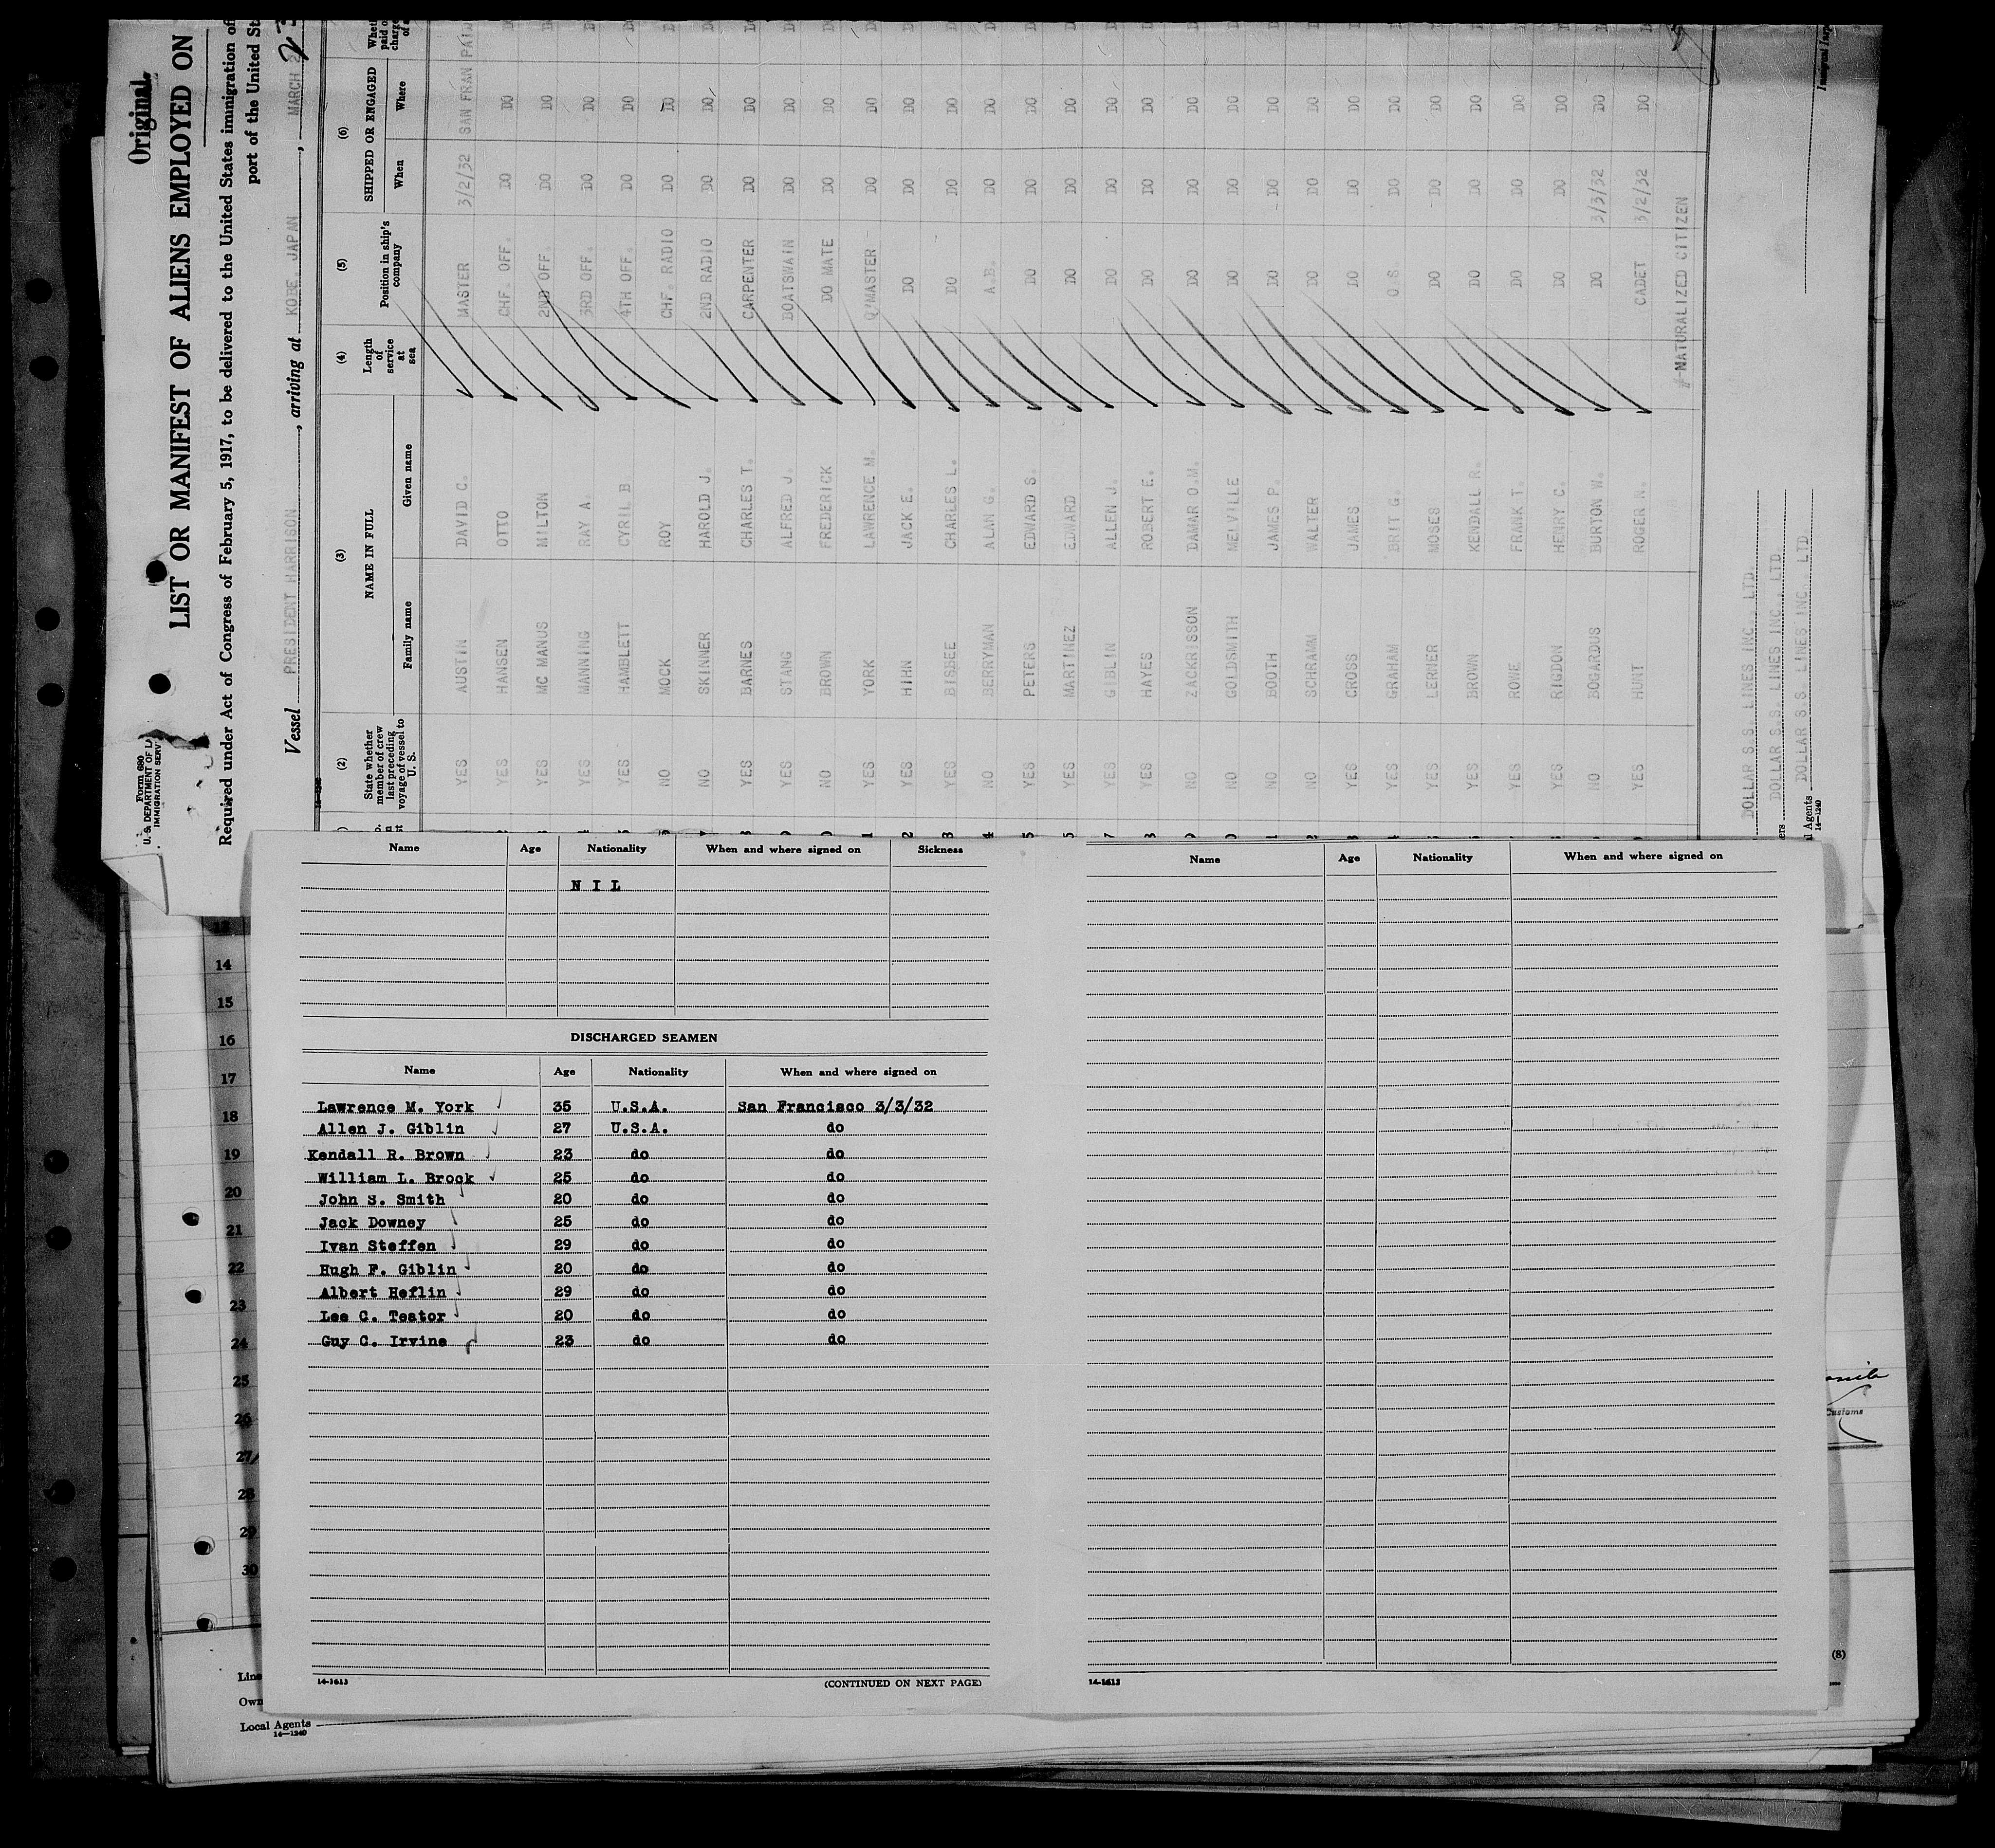 Original
Form 680
U. S. DEPARTMENT OF
IMMIGRATION
LIST OR MANIFEST OF ALIENS EMPLOYED ON
Required under Act of Congress of February 5, 1917, to be delivered to the United States immigration of
port of the United St
Vessel PRESIDENT HARRISON, arriving at KOBE, JAPAN, MARCH
(2) (3) (4) (5) (6)
State whether member of crew last preceding voyage of vessel to U. S. NAME IN FULL Length of service at sea Position in ship's company SHIPPED OR ENGAGED
Family name Given name When Where
YES AUSTIN DAVID C. MASTER 3/2/32 SAN FRAN PAID
YES HANSEN OTTO CHF. OFF. DO DO
YES MC MANUS MILTON 2ND OFF. DO DO
YES MANNING RAY A. 3RD OFF. DO DO
YES HAMBLETT CYRIL B 4TH OFF. DO DO
NO MOCK ROY CHF. RADIO DO DO
NO SKINNER HAROLD J. 2ND RADIO DO DO
YES BARNES CHARLES T. CARPENTER DO DO
YES STANG ALFRED J. BOATSWAIN DO DO
NO BROWN FREDERICK DO MATE DO DO
YES YORK LAWRENCE M. Q'MASTER DO DO
YES HIHN JACK E. DO DO DO
YES BISBEE CHARLES L. DO DO DO
NO BERRYMAN ALAN G. A.B. DO DO
YES PETERS EDWARD S. DO DO DO
YES MARTINEZ EDWARD DO DO DO
YES GIBLIN ALLEN J. DO DO DO
YES HAYES ROBERT E. DO DO DO
NO ZACKRISSON DAMAR O.M. DO DO DO
NO GOLDSMITH MELVILLE DO DO DO
NO BOOTH JAMES P. DO DO DO
NO SCHRAMM WALTER DO DO DO
YES CROSS JAMES DO DO DO
YES GRAHAM BRIT G. O.S. DO DO
YES LERNER MOSES DO DO DO
YES BROWN KENDALL R. DO DO DO
YES ROWE FRANK T. DO DO DO
YES RIGDON HENRY C. DO DO DO
NO BOGARDUS BURTON W. DO 3/3/32 DO
YES HUNT ROGER N. CADET 3/2/32 DO
#-NATURALIZED CITIZEN
DOLLAR S.S. LINES INC., LTD.
DOLLAR S.S. LINES INC., LTD
Agents DOLLAR S.S. LINES INC., LTD
14-1240
Name Age Nationality When and where signed on Sickness
N I L
DISCHARGED SEAMEN
Name Age Nationality When and where signed on
Lawrence M. York 35 U.S.A. San Francisco 3/3/32
Allen J. Giblin 27 U.S.A. do
Kendall R. Brown 23 do do
William L. Brock 25 do do
John S. Smith 20 do do
Jack Downey 25 do do
Ivan Steffen 29 do do
Hugh F. Giblin 20 do do
Albert Heflin 29 do do
Lee C. Teator 20 do do
Guy C. Irvine 23 do do
14-1613 (CONTINUED ON NEXT PAGE)
Name Age Nationality When and where signed on
14-1613
14
15
16
17
18
19
20
21
22
23
24
25
26
27
28
29
30
Line
Own
Local Agents
14-1240
Customs
(8)